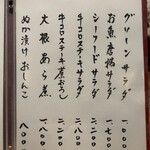 グリーンサラダ 一、〇〇〇
お魚唐揚サラダ 一、七〇〇
シーフードサラダ 二、〇〇〇
牛コロステーキサラダ 二、八〇〇
牛コロステーキ(荒おろし) 二、二〇〇
大根あら煮 一、八〇〇
ぬか漬けおしんこ 八〇〇